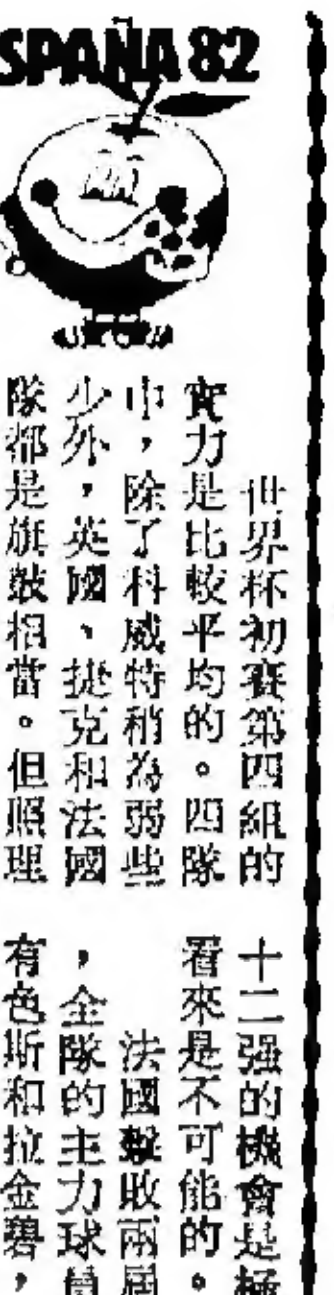 ESPAÑA 82
世界杯初賽第四組的
實力是比較平均的。四隊
中，除了科威特稍為弱些
少外，英國、捷克和法國
隊都是旗鼓相當。但照理
十二强的機會是極
看來是不可能的。
法國擊敗兩屆
，全隊的主力球員
有色斯和拉金碧，